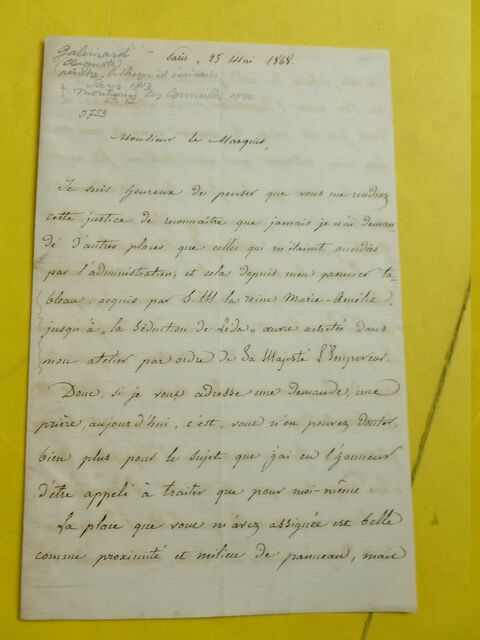 Galimard
(Auguste)
peintre, lithogr et écrivain
Paris 1813
† Montigny les Cormeilles 1880
Paris, 25 Mai 1868.
9753
Monsieur le Marquis,
Je suis heureux de penser que vous me rendrez
cette justice de reconnaître que jamais je n'ai deman
dé d'autres places que celles qui m'étaient accordées
par l'administration; et cela depuis mon premier ta-
bleau, acquis par S. M. la reine Marie-Amélie,
jusqu'à "la Séduction de Léda" œuvre achetée dans
mon atelier par ordre de Sa Majesté L'Empereur.
Donc, si je vous adresse une demande, une
prière, aujourd'hui, c'est, vous n'en pouvez douter,
bien plus pour le sujet que j'ai eu l'honneur
d'être appelé à traiter que pour moi-même.
La place que vous m'avez assignée est belle
comme proximité et milieu de panneau, mais